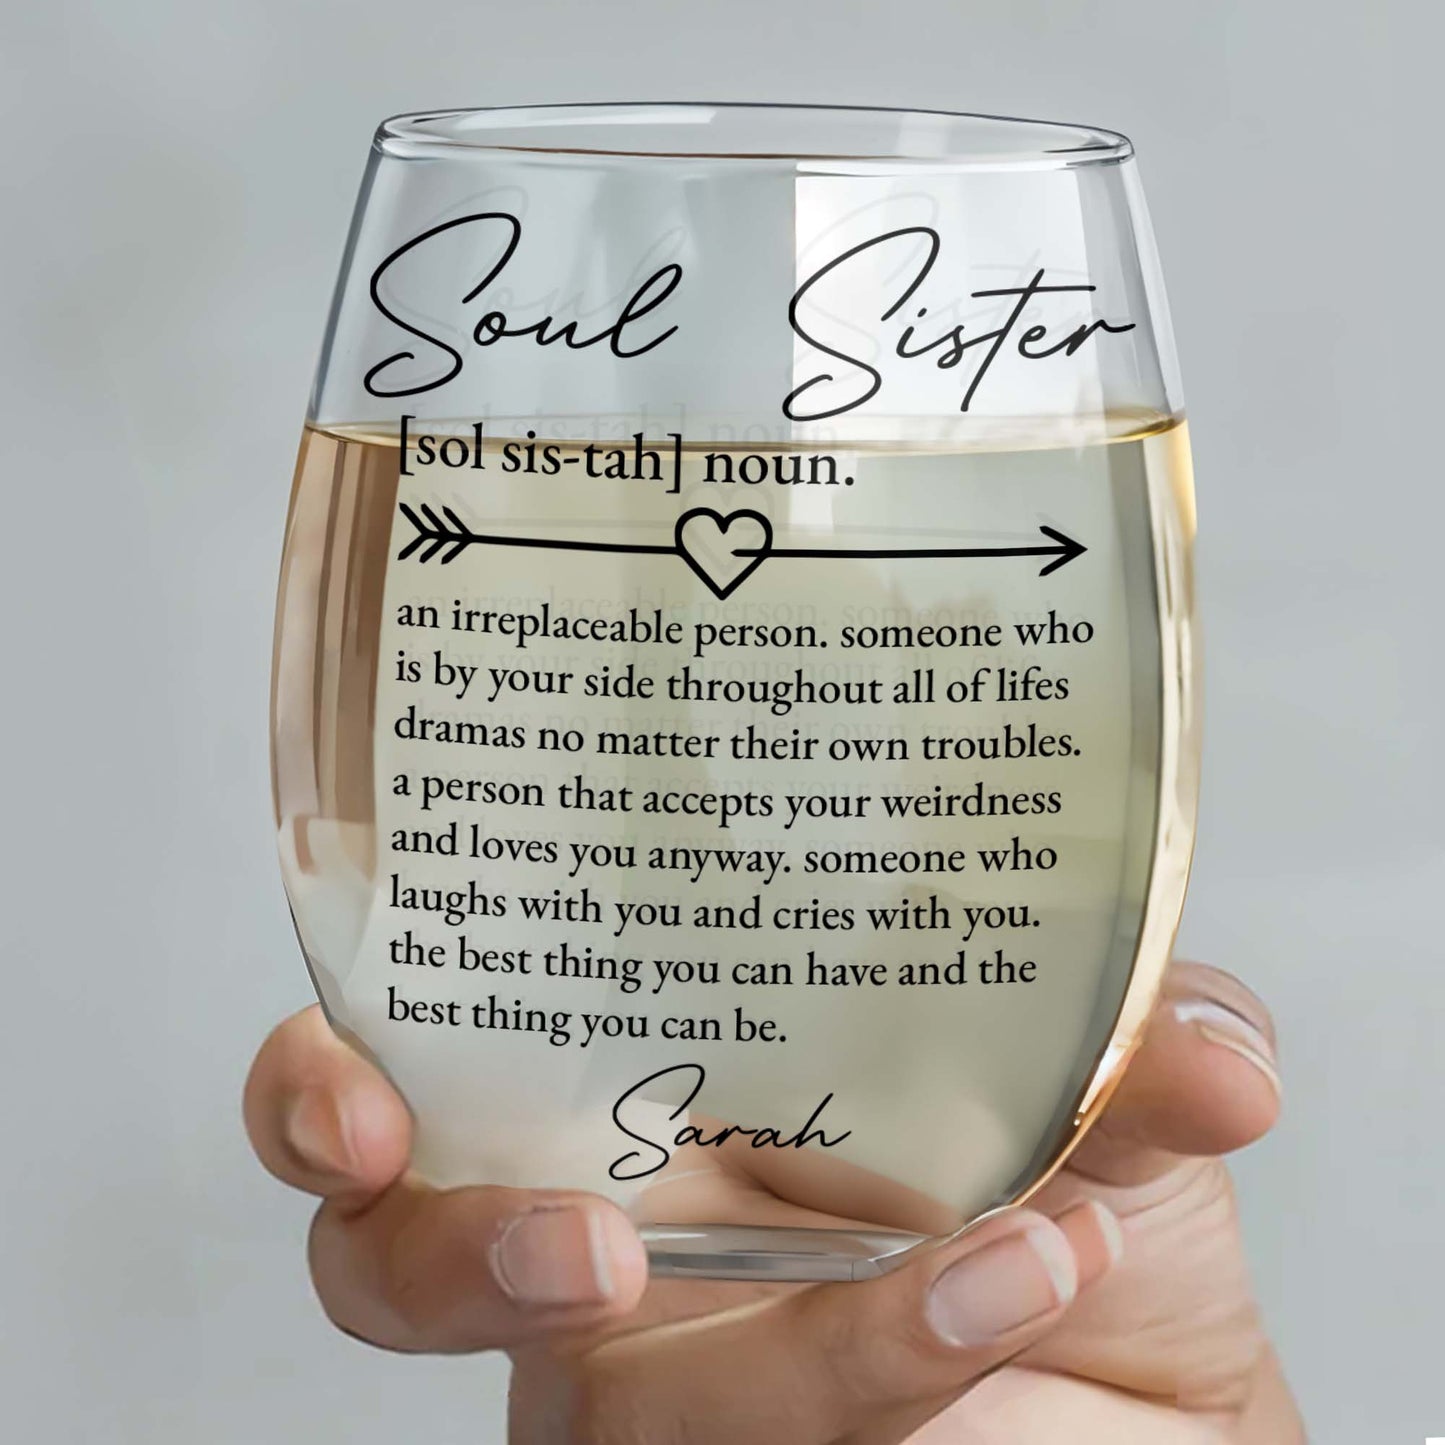 Soul Sister
[sol sis-tah] noun.
an irreplaceable person. someone who
is by your side throughout all of lifes
dramas no matter their own troubles.
a person that accepts your weirdness
and loves you anyway. someone who
laughs with you and cries with you.
the best thing you can have and the
best thing you can be.
Sarah